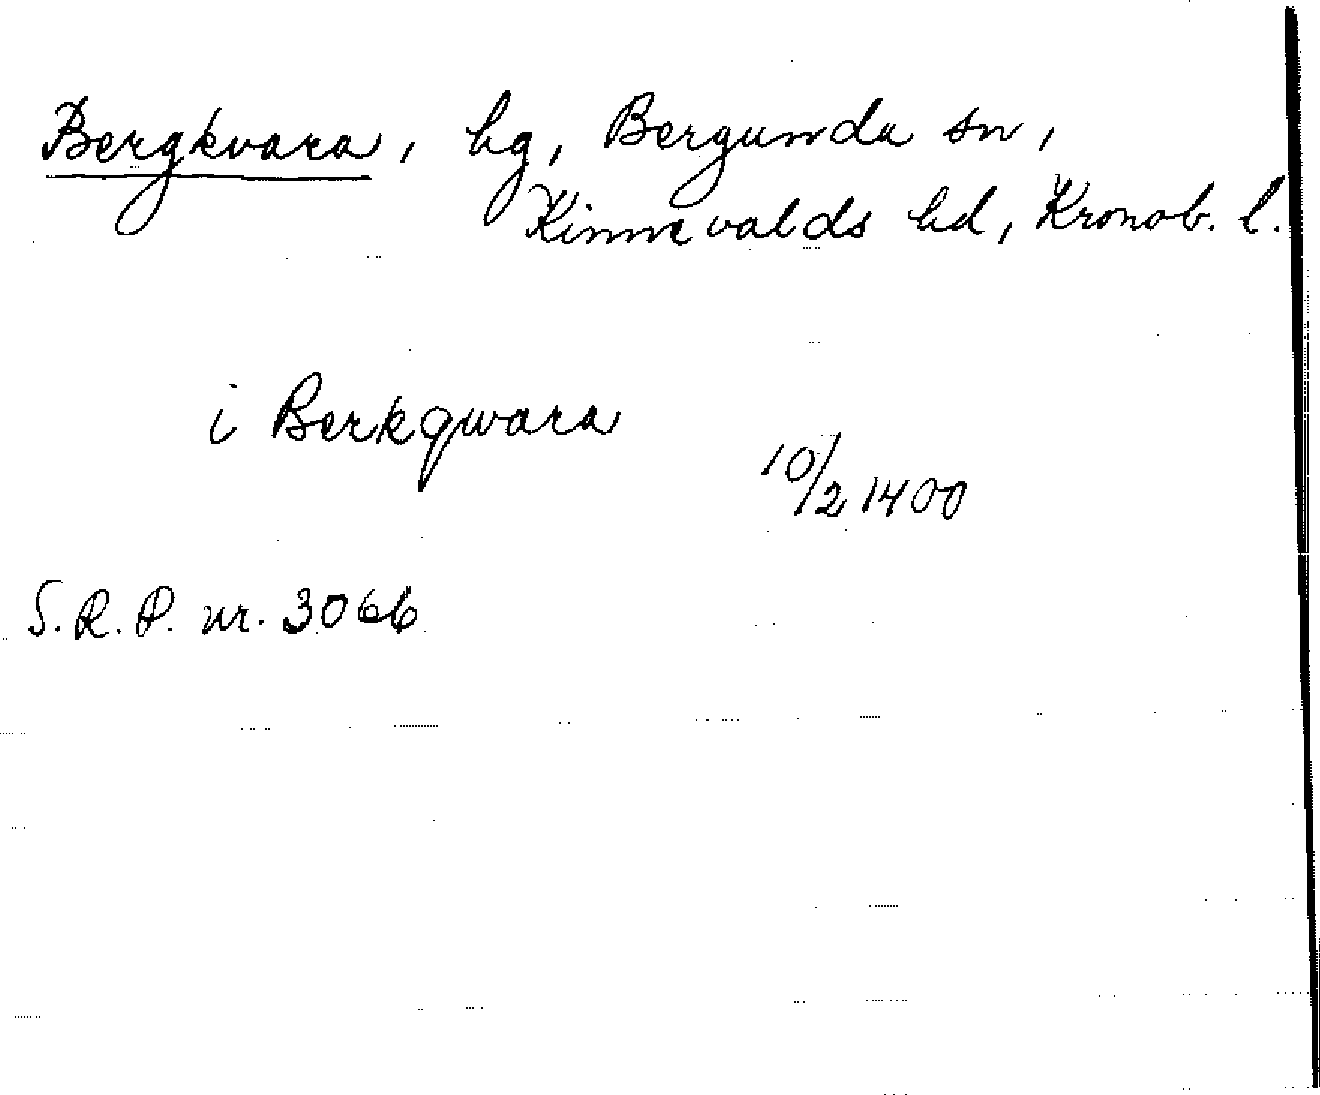 Bergkvara, hg, Bergunda sn,
Kinnevalds hd, Kronob. l.
i Berkqwara
10/2 1400
S.R.P. nr. 3066